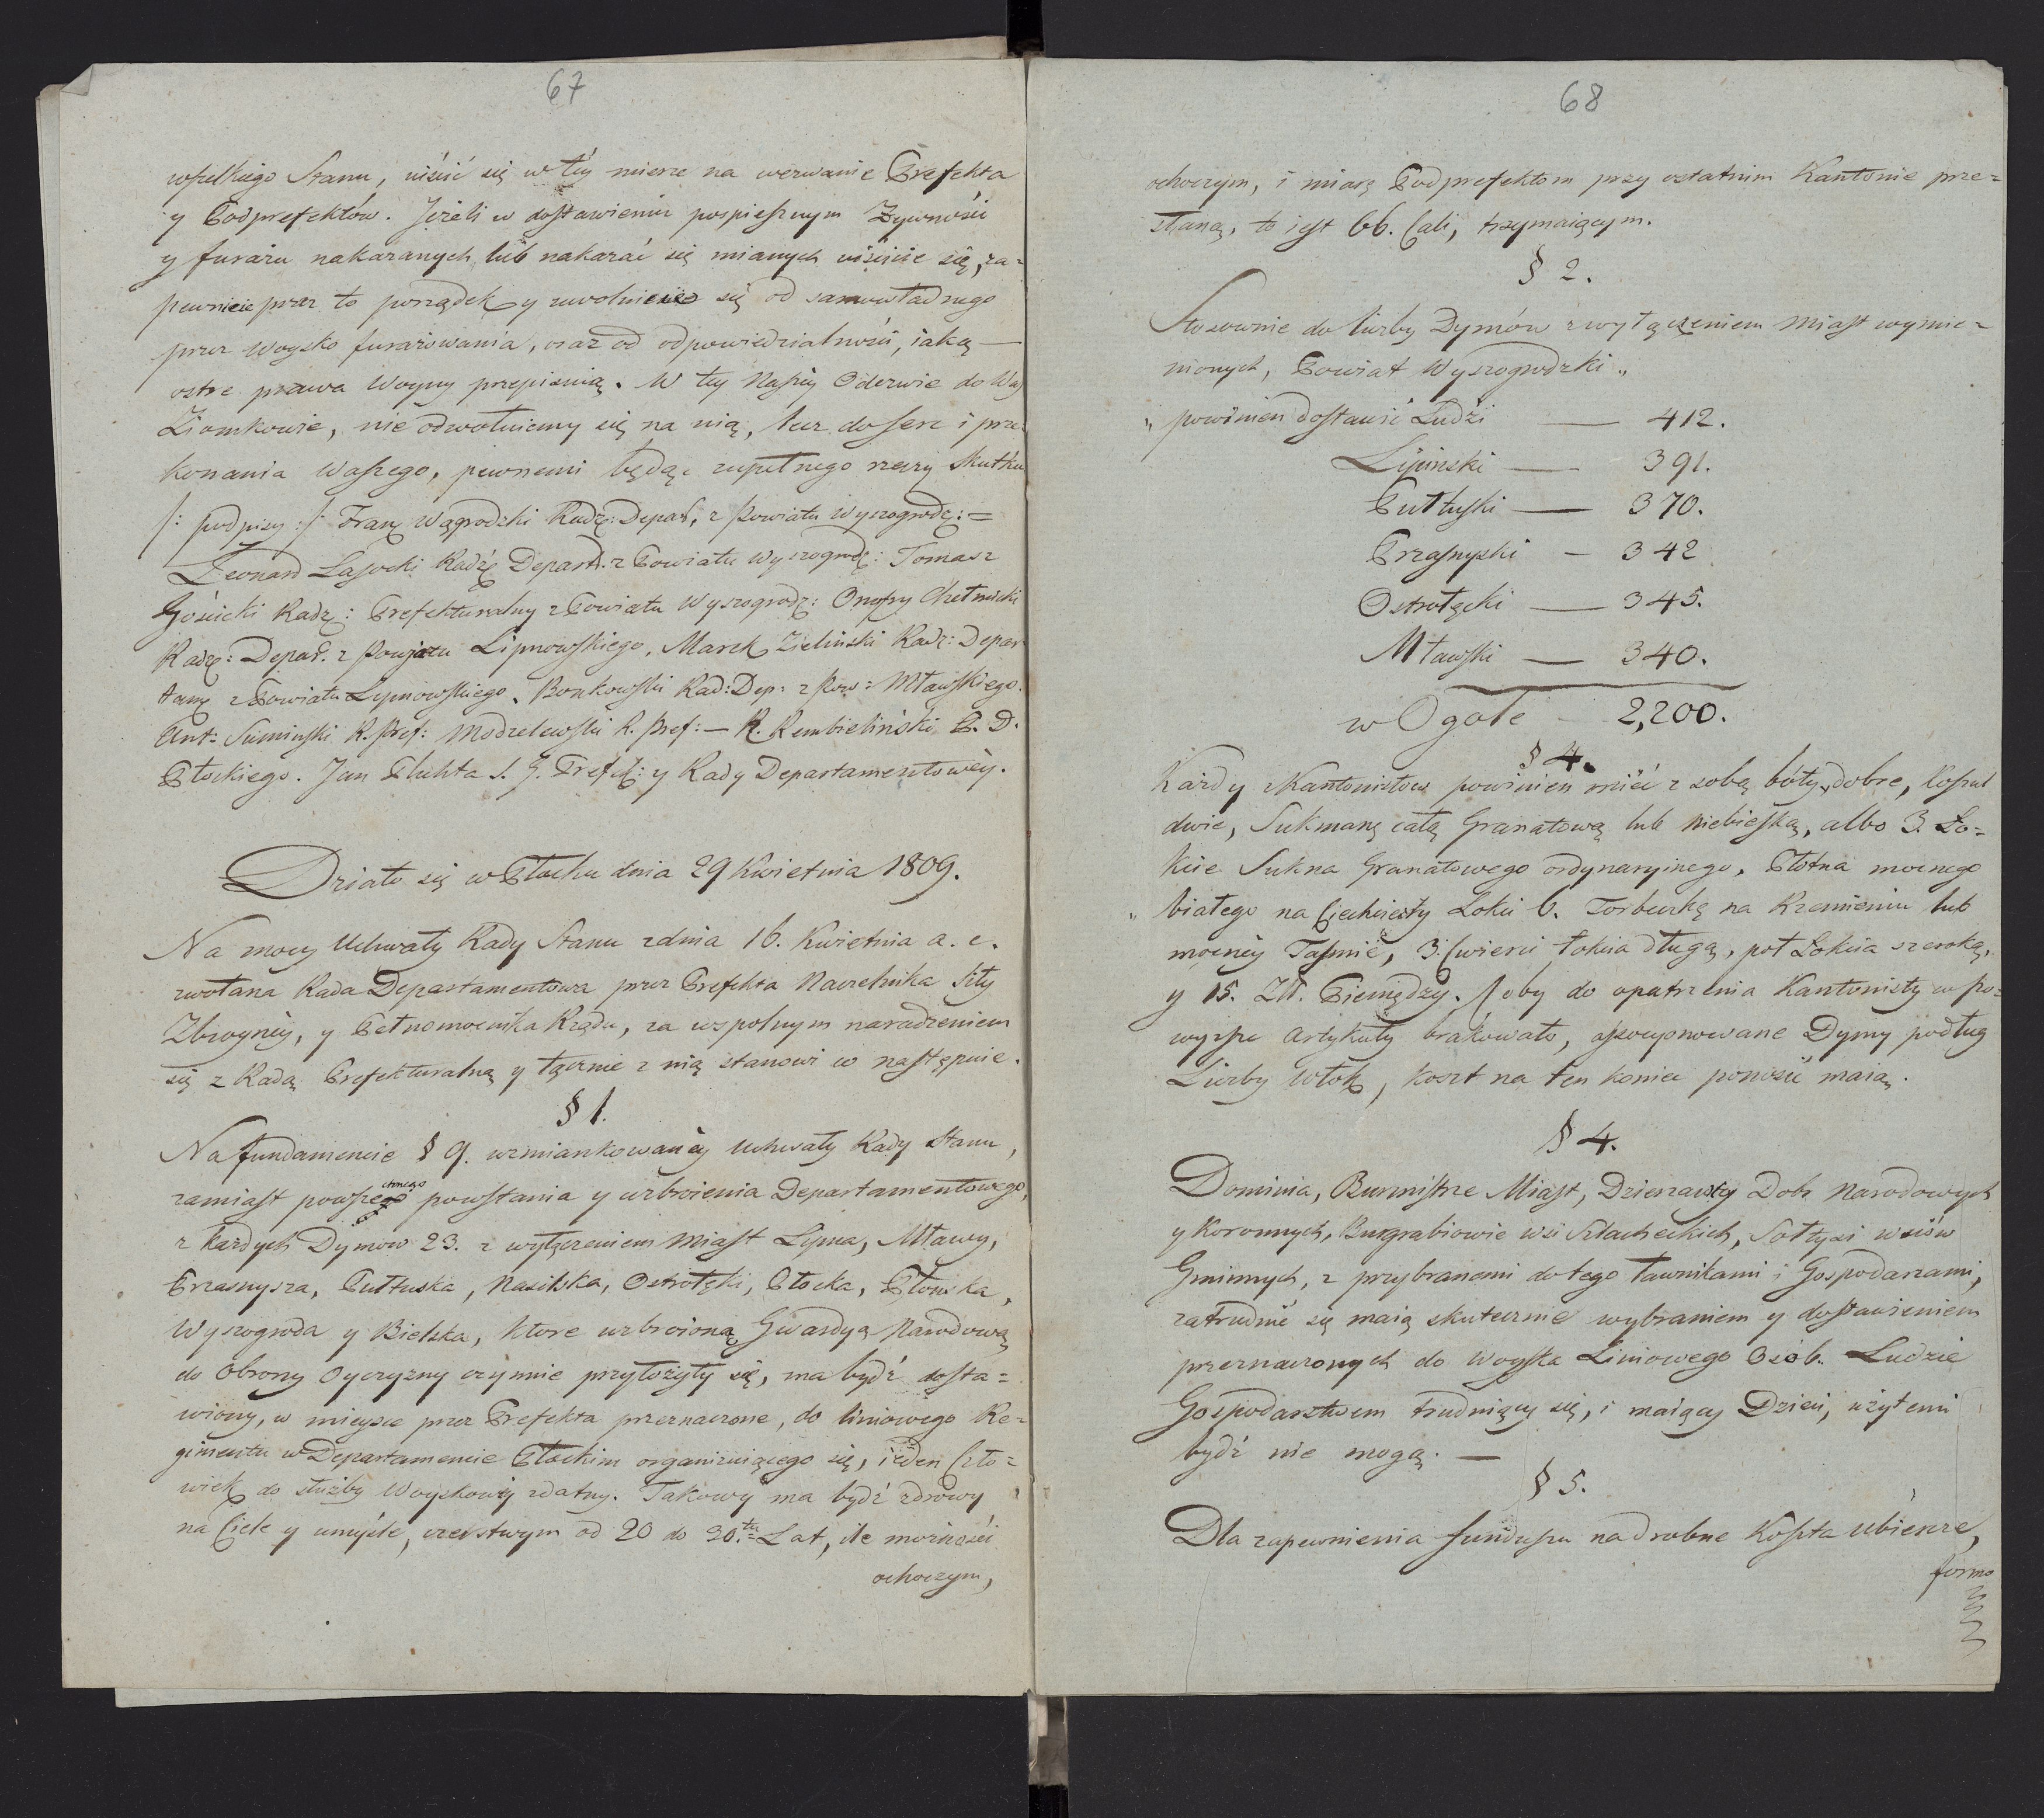 67
wszelkiego Stanu, uiścić się w téy mierze na wezwanie Prefekta
y Podprefektów. Jeżeli w dostawieniu pospiesznym Żywności
y furażu nakazanych lub nakazać się mianych uiścicie się, za=
pewnicie przez to porządek y uwolnicie się od samowładnego
przez Woysko furażowania, oraz od odpowiedzialności, iaką —
ostre prawa Woyny przepisuią. W tey Naszéy Odezwie do Was
Ziomkowie, nie odwołuiemy się na nią, lecz do serc i prze=
konania Waszego, pewnemi będąc zupełnego rzeczy skutku
/: podpisy :/ Franc Wągrodzki Radz: Depart, z Powiatu Wyszogrodz: =
Leonard Lasocki Radzc Depart. z Powiatu Wyszogrodz: Tomasz
Gościcki Radz: Prefekturalny z Powiatu Wyszogrodz: Onufry Chełmicki
Radz: Depart. z Powiatu Lipnowskiego, Marek Zieliński Radz: Depar
tam z Powiatu Lipnowskiego, Bonkowski Rad: Dep: z Pow: Mławskiego.
Ant: Sumiński R. Pref: Modzelewski R. Pref: — R. Rembieliński P. D.
Płockiego. Jan Pluhta S. J. Prefek: y Rady Departamentowéy.
Działo się w Płocku dnia 29 Kwietnia 1809.
Na mocy Uchwały Rady Stanu z dnia 16. Kwietnia a. c.
zwołana Rada Departamentowa przez Prefekta Naczelnika Siły
Zbroynéy, y Pełnomocnika Rządu, za wspolnym naradzeniem
się z Radą Prefekturalną y łącznie z nią stanowi co następuie.
§ 1.
Na fundamencie § 9. wzmiankowanéy Uchwały Rady Stanu,
zamiast powszechnego powstania y uzbroienia Departamentowego,
z każdych Dymow 23. z wyłączeniem Miast Lipna, Mławy,
Przasnysza, Pułtuska, Nasielska, Ostrołęki, Płocka, Płońska,
Wyszogroda y Bielska, ktore uzbroioną Gwardyą Narodową
do obrony Oyczyzny czynnie przyłożyły się, ma bydź dosta=
wiony, w mieysce przez Prefekta przeznaczone, do liniowego Re=
gimentu w Departamencie Płockim organizuiącego się, ieden Czło=
wiek do służby Woyskowéy zdatny. Takowy ma bydź zdrowy
na Ciele y umyśle, czerstwym od 20 do 30.tu Lat, ile możności
ochoczym,
68
ochoczym, i miarę Podprefektom przy ostatnim Kantonie prze=
słaną, to iest 66. Cali, trzymaiącym.
§ 2.
Stosownie do liczby Dymów z wyłączeniem Miast wymie=
nionych, Powiat Wyszogrodzki „
„ powinien dostawić Ludzi — 412.
Lipinski — 391.
Pułtuski — 370.
Przasnyski — 342
Ostrołęcki — 345.
Mławski — 340.
w Ogole 2,200.
§ 4.
Każdy z Kantonistow powinien mieć z sobą bóty dobre, Koszul
dwie, Sukmanę całą Granatową lub niebieską, albo 3. Ło=
kcie Sukna Granatowego ordynaryinego, Płótna mocnego
„ białego na Ciechciety Łokci 6. Torbeczkę na Rzemieniu lub
mocnéy Taśmie, 3. Cwierci łokcia długą, pół Łokcia szeroką,
y 15. Zł. Pieniędzy. Coby do opatrzenia Kantonisty w po=
wyższe artykuły brakowało, assocyonowane Dymy podług
Liczby Włok, koszt na ten koniec ponosić maią.
§ 4.
Dominia, Burmistrze Miast, Dzierzawcy Dobr Narodowych
y Koronnych, Burgrabiowie wsi Szlacheckich, Sołtysi wsiów
Gminnych, z przybranemi do tego Ławnikami i Gospodarzami,
zatrudnić się maią skutecznie wybraniem y dostawieniem
przeznaczonych do Woyska Liniowego Osób. Ludzie
Gospodarstwem trudniący się, i maiący Dzieci, użytemi
bydź nie mogą. —
§ 5.
Dla zapewnienia funduszu na drobne Koszta ubiercze,
formo